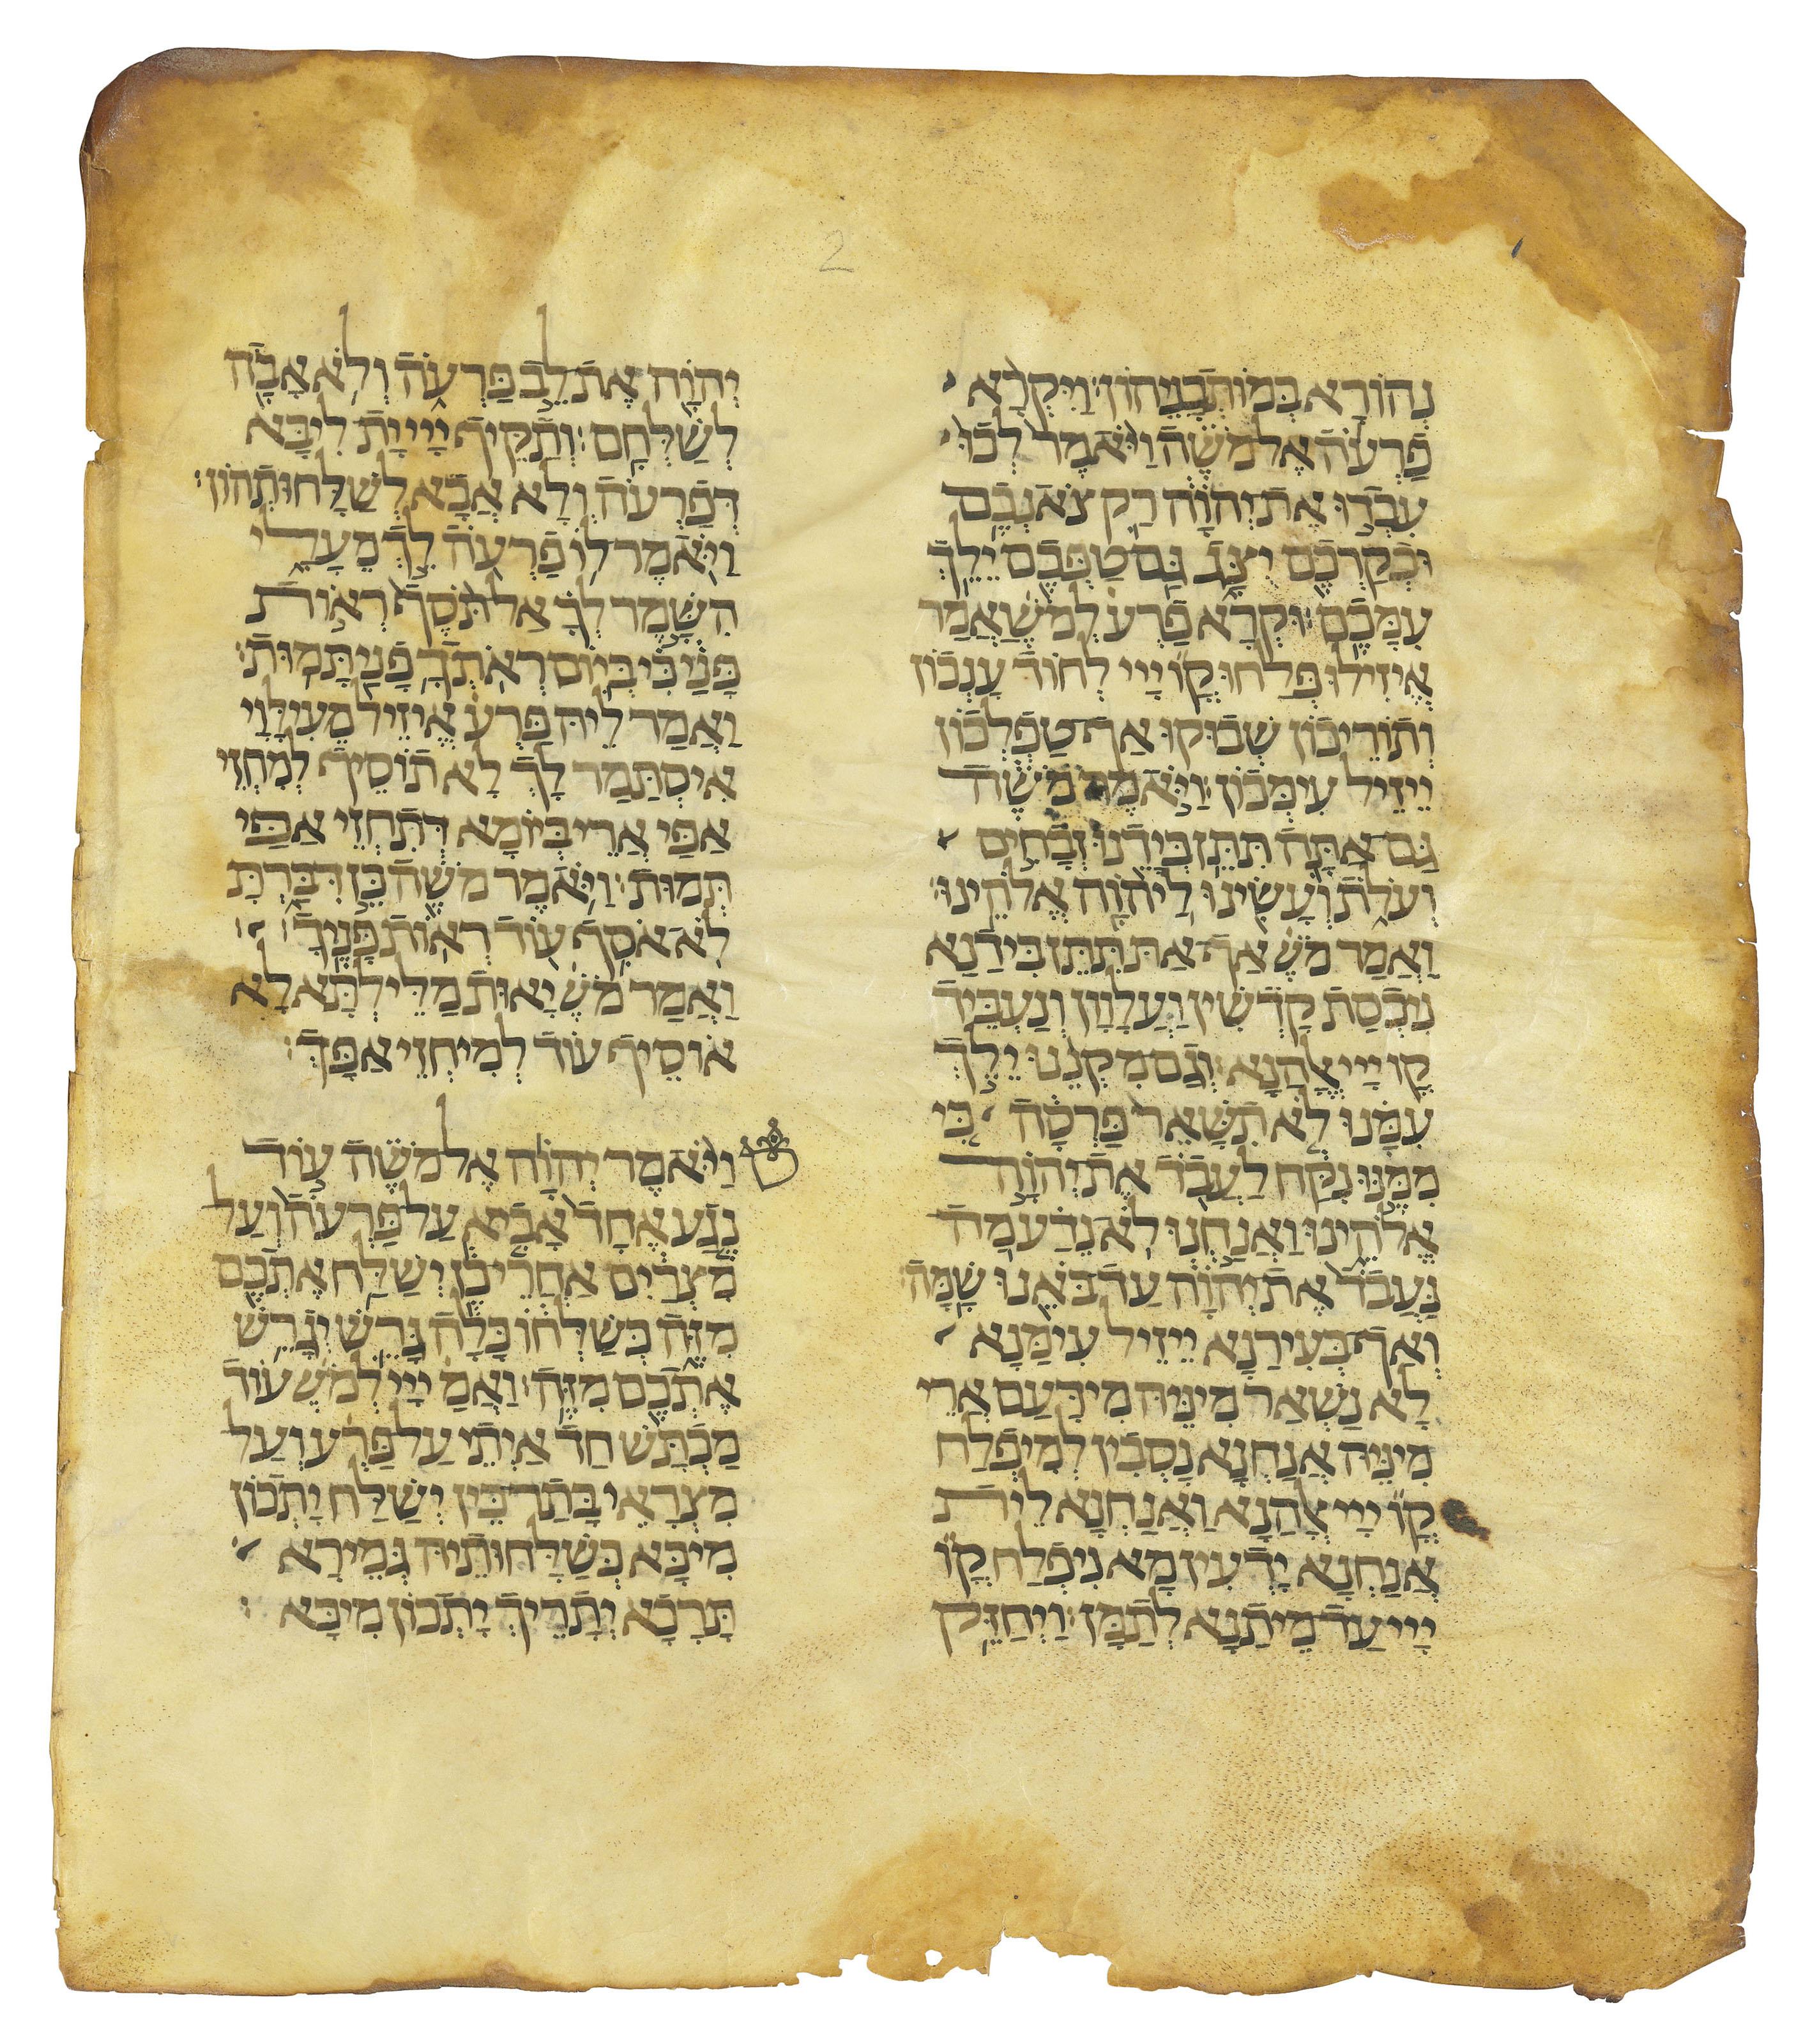 2
נְהוֹרָא בְּמוֹתְבָנֵיהוֹן׃ וַיִּקְרָא
פַרְעֹה אֶל מֹשֶׁה וַיֹּאמֶר לְכוּ
עִבְדוּ אֶת יְהוָה רַק צֹאנְכֶם
וּבְקַרְכֶם יֻצָּג גַּם טַפְּכֶם יֵלֵךְ
עִמָּכֶם׃ וּקְרָא פַרְעֹ לְמֹשֶׁ וַאֲמַר
אֱיזִילוּ פְּלַחוּ קֳ יְיָ לְחוֹד עָנְכוֹן
וְתוֹרֵיכוֹן שְׁבוּקוּ אַף טַפְלְכוֹן
יֵיזֵיל עִימְּכוֹן׃ וַיֹּאמֶר מֹשֶׁה
גַּם אַתָּה תִּתֵּן בְּיָדֵנוּ זְבָחִים
וְעֹלֹת וְעָשִׂינוּ לַיהוָה אֱלֹהֵינוּ׃
וַאֲמַר מֹשֶׁ אַף אַתְּ תִּתֵּן בִּידַנָא
נִכְסַת קֻדְשִׁין וַעֲלָוָן וְנַעְבֵּיד
קֳ יְיָ אֱלָהַנָא׃ וְגַם מִקְנֵנוּ יֵלֵךְ
עִמָּנוּ לֹא תִשָּׁאֵר פַּרְסָה כִּי
מִמֶּנּוּ נִקַּח לַעֲבֹד אֶת יְהוָה
אֱלֹהֵינוּ וַאֲנַחְנוּ לֹא נֵדַע מַה
נַּעֲבֹד אֶת יְהוָה עַד בֹּאֵנוּ שָׁמָּה׃
וְאַף בְּעִירַנָא יֵיזֵיל עִימַּנָא
לָא נַשְׁאַר מִינֵּיהּ מִידַּעַם אֲרֵי
מִינֵּיהּ אֲנַחְנָא נָסְבִין לְמִיפְלַח
קֳ יְיָ אֱלָהַנָא וַאֲנַחְנָא לֵית
אֲנַחְנָא יָדְעִין מָא נִיפְלַח קֳ
יְיָ עַד מֵיתַנָא לְתַמָּן׃ וַיְחַזֵּק
יְהוָה אֶת לֵב פַּרְעֹה וְלֹא אָבָה
לְשַׁלְּחָם׃ וְתַקֵּיף יְיָ יָת לִיבָּא
דְּפַרְעֹה וְלָא אֲבָא לְשַׁלָּחוּתְהוֹן׃
וַיֹּאמֶר לוֹ פַרְעֹה לֵךְ מֵעָלָי
הִשָּׁמֶר לְךָ אַל תֹּסֶף רְאוֹת
פָּנַי כִּי בְּיוֹם רְאֹתְךָ פָנַי תָּמוּת׃
וַאֲמַר לֵיהּ פַּרְעֹ אֱיזֵיל מֵעִילָּוַי
אִיסְתַּמַּר לָךְ לָא תוֹסֵיף לְמִחְזֵי
אַפַּי אֲרֵי בְּיוֹמָא דְּתִחְזֵי אַפַּי
תְּמוּת׃ וַיֹּאמֶר מֹשֶׁה כֵּן דִּבַּרְתָּ
לֹא אֹסִף עוֹד רְאוֹת פָּנֶיךָ׃
וַאֲמַר מֹשֶׁ יָאוּת מַלֵּילְתָּא לָא
אוֹסֵיף עוֹד לְמִיחְזֵי אַפָּךְ׃
וַיֹּאמֶר יְהוָה אֶל מֹשֶׁה עוֹד
נֶגַע אֶחָד אָבִיא עַל פַּרְעֹה וְעַל
מִצְרַיִם אַחֲרֵי כֵן יְשַׁלַּח אֶתְכֶם
מִזֶּה כְּשַׁלְּחוֹ כָּלָה גָּרֵשׁ יְגָרֵשׁ
אֶתְכֶם מִזֶּה׃ וַאֲמַ יְיָ לְמֹשֶׁ עוֹד
מַכְתָּשׁ חַד אַיְתֵי עַל פַּרְעֹ וְעַל
מִצְרָאֵי בָּתַר כֵּין יְשַׁלַּח יָתְכוֹן
מִיכָּא כְּשַׁלָּחוּתֵיהּ גְּמֵירָא
תָּרָכָא יְתָרֵיךְ יָתְכוֹן מִיכָּא׃